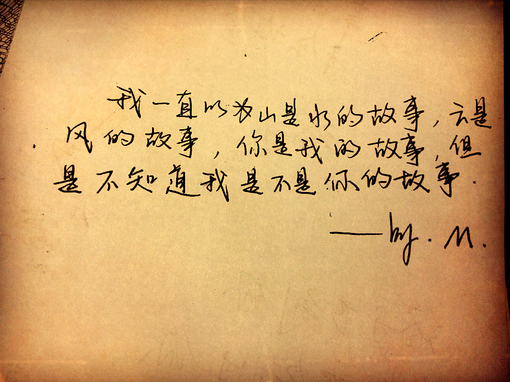 我一直以为山是水的故事，云是
风的故事，你是我的故事，但
是不知道我是不是你的故事.
——by. M.